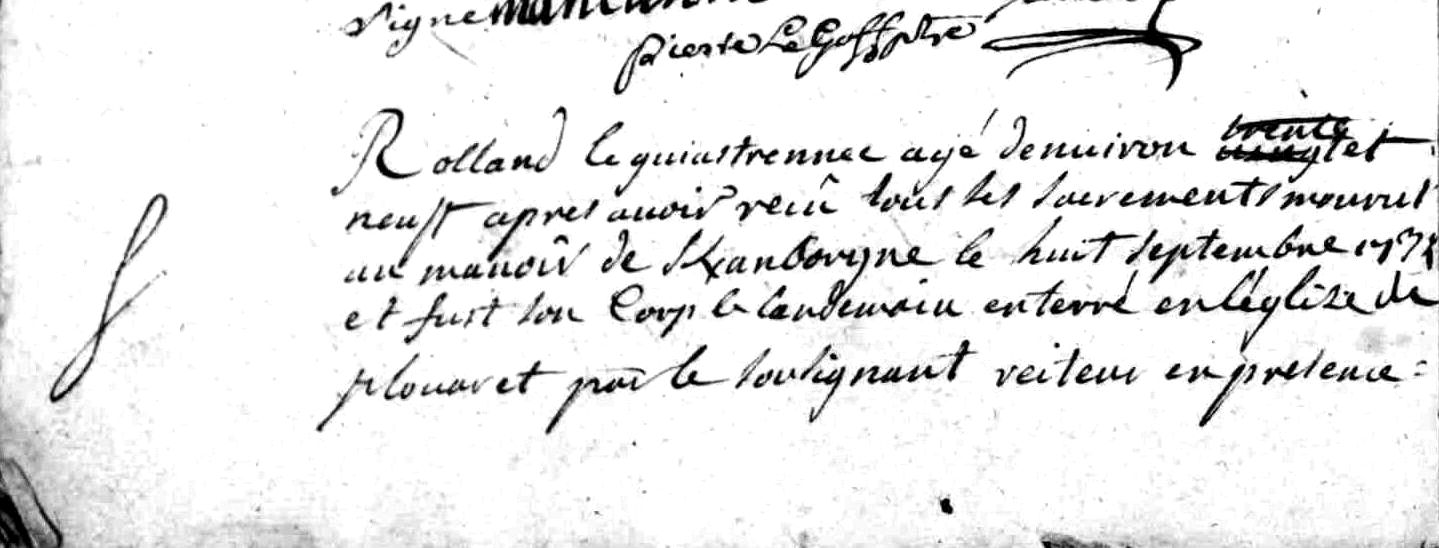 signe
pierre Le Goff ptre
Rolland le quiastrennec agé denuiron trente vingt et
neuff apres auoir recû tous ses sacrements mourut
au manoir de le huit septembre
et fust son Corp le landemain enterré en léglize de
plouaret par le sousignant recteur en presence =